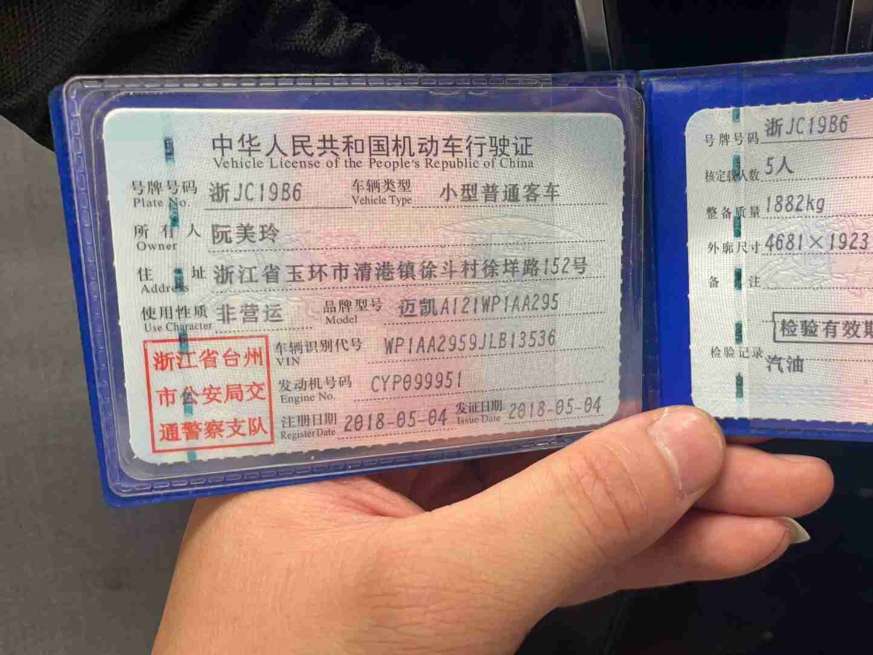 中华人民共和国机动车行驶证
Vehicle License of the People's Republic of China
号牌号码 浙JC19B6 车辆类型 小型普通客车
Plate No. Vehicle Type
所有人 阮美玲
Owner
住址 浙江省玉环市清港镇徐斗村徐垟路152号
Address
使用性质 非营运 品牌型号 迈凯A121WP1AA295
Use Character Model
浙江省台州
市公安局交
通警察支队
车辆识别代号 WP1AA2959JLB13536
VIN
发动机号码 CYP099951
Engine No.
注册日期 2018-05-04 发证日期 2018-05-04
Register Date Issue Date
号牌号码 浙JC19B6
核定载人数 5人
整备质量 1882kg
外廓尺寸 4681×1923
备注
检验有效期
检验记录
汽油